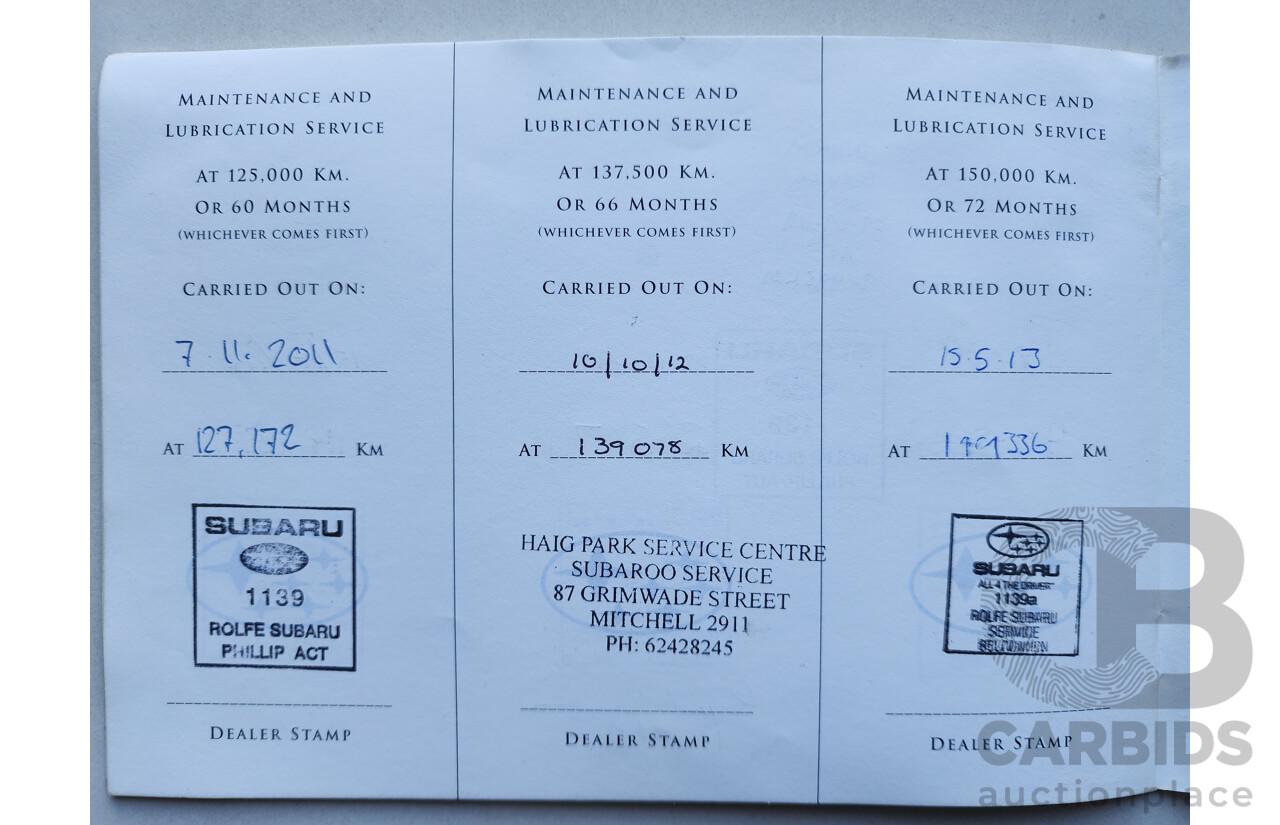 MAINTENANCE AND
LUBRICATION SERVICE
AT 125,000 KM.
OR 60 MONTHS
(WHICHEVER COMES FIRST)
CARRIED OUT ON:
7.11.2011
AT 127,172 KM
SUBARU
1139
ROLFE SUBARU
PHILLIP ACT
DEALER STAMP
MAINTENANCE AND
LUBRICATION SERVICE
AT 137,500 KM.
OR 66 MONTHS
(WHICHEVER COMES FIRST)
CARRIED OUT ON:
10/10/12
AT 139078 KM
HAIG PARK SERVICE CENTRE
SUBAROO SERVICE
87 GRIMWADE STREET
MITCHELL 2911
PH: 62428245
DEALER STAMP
MAINTENANCE AND
LUBRICATION SERVICE
AT 150,000 KM.
OR 72 MONTHS
(WHICHEVER COMES FIRST)
CARRIED OUT ON:
15.5.13
AT KM
SUBARU
ALL 4 THE DRIVER
1139a
ROLFE SUBARU
SERVICE
BELCONNEN
DEALER STAMP
B
CARBIDS
auctionplace